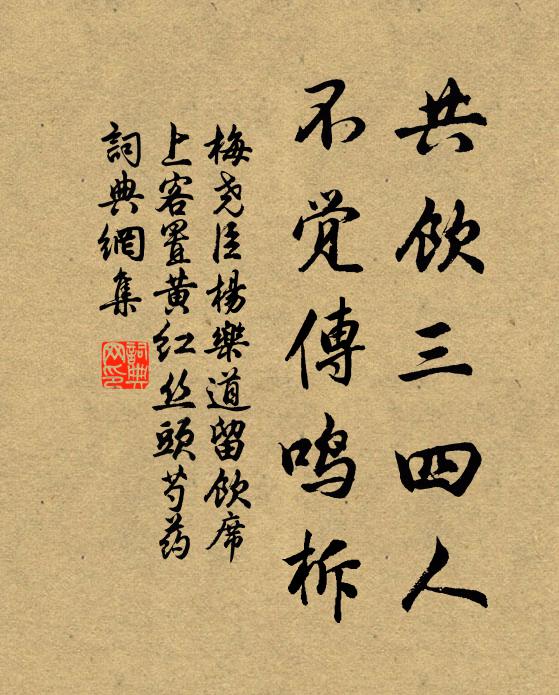 共饮三四人
不觉傳鸣柝
梅尧臣楊樂道留饮席
上客置黄红丝頭芍药
詞典網集
詞典网印